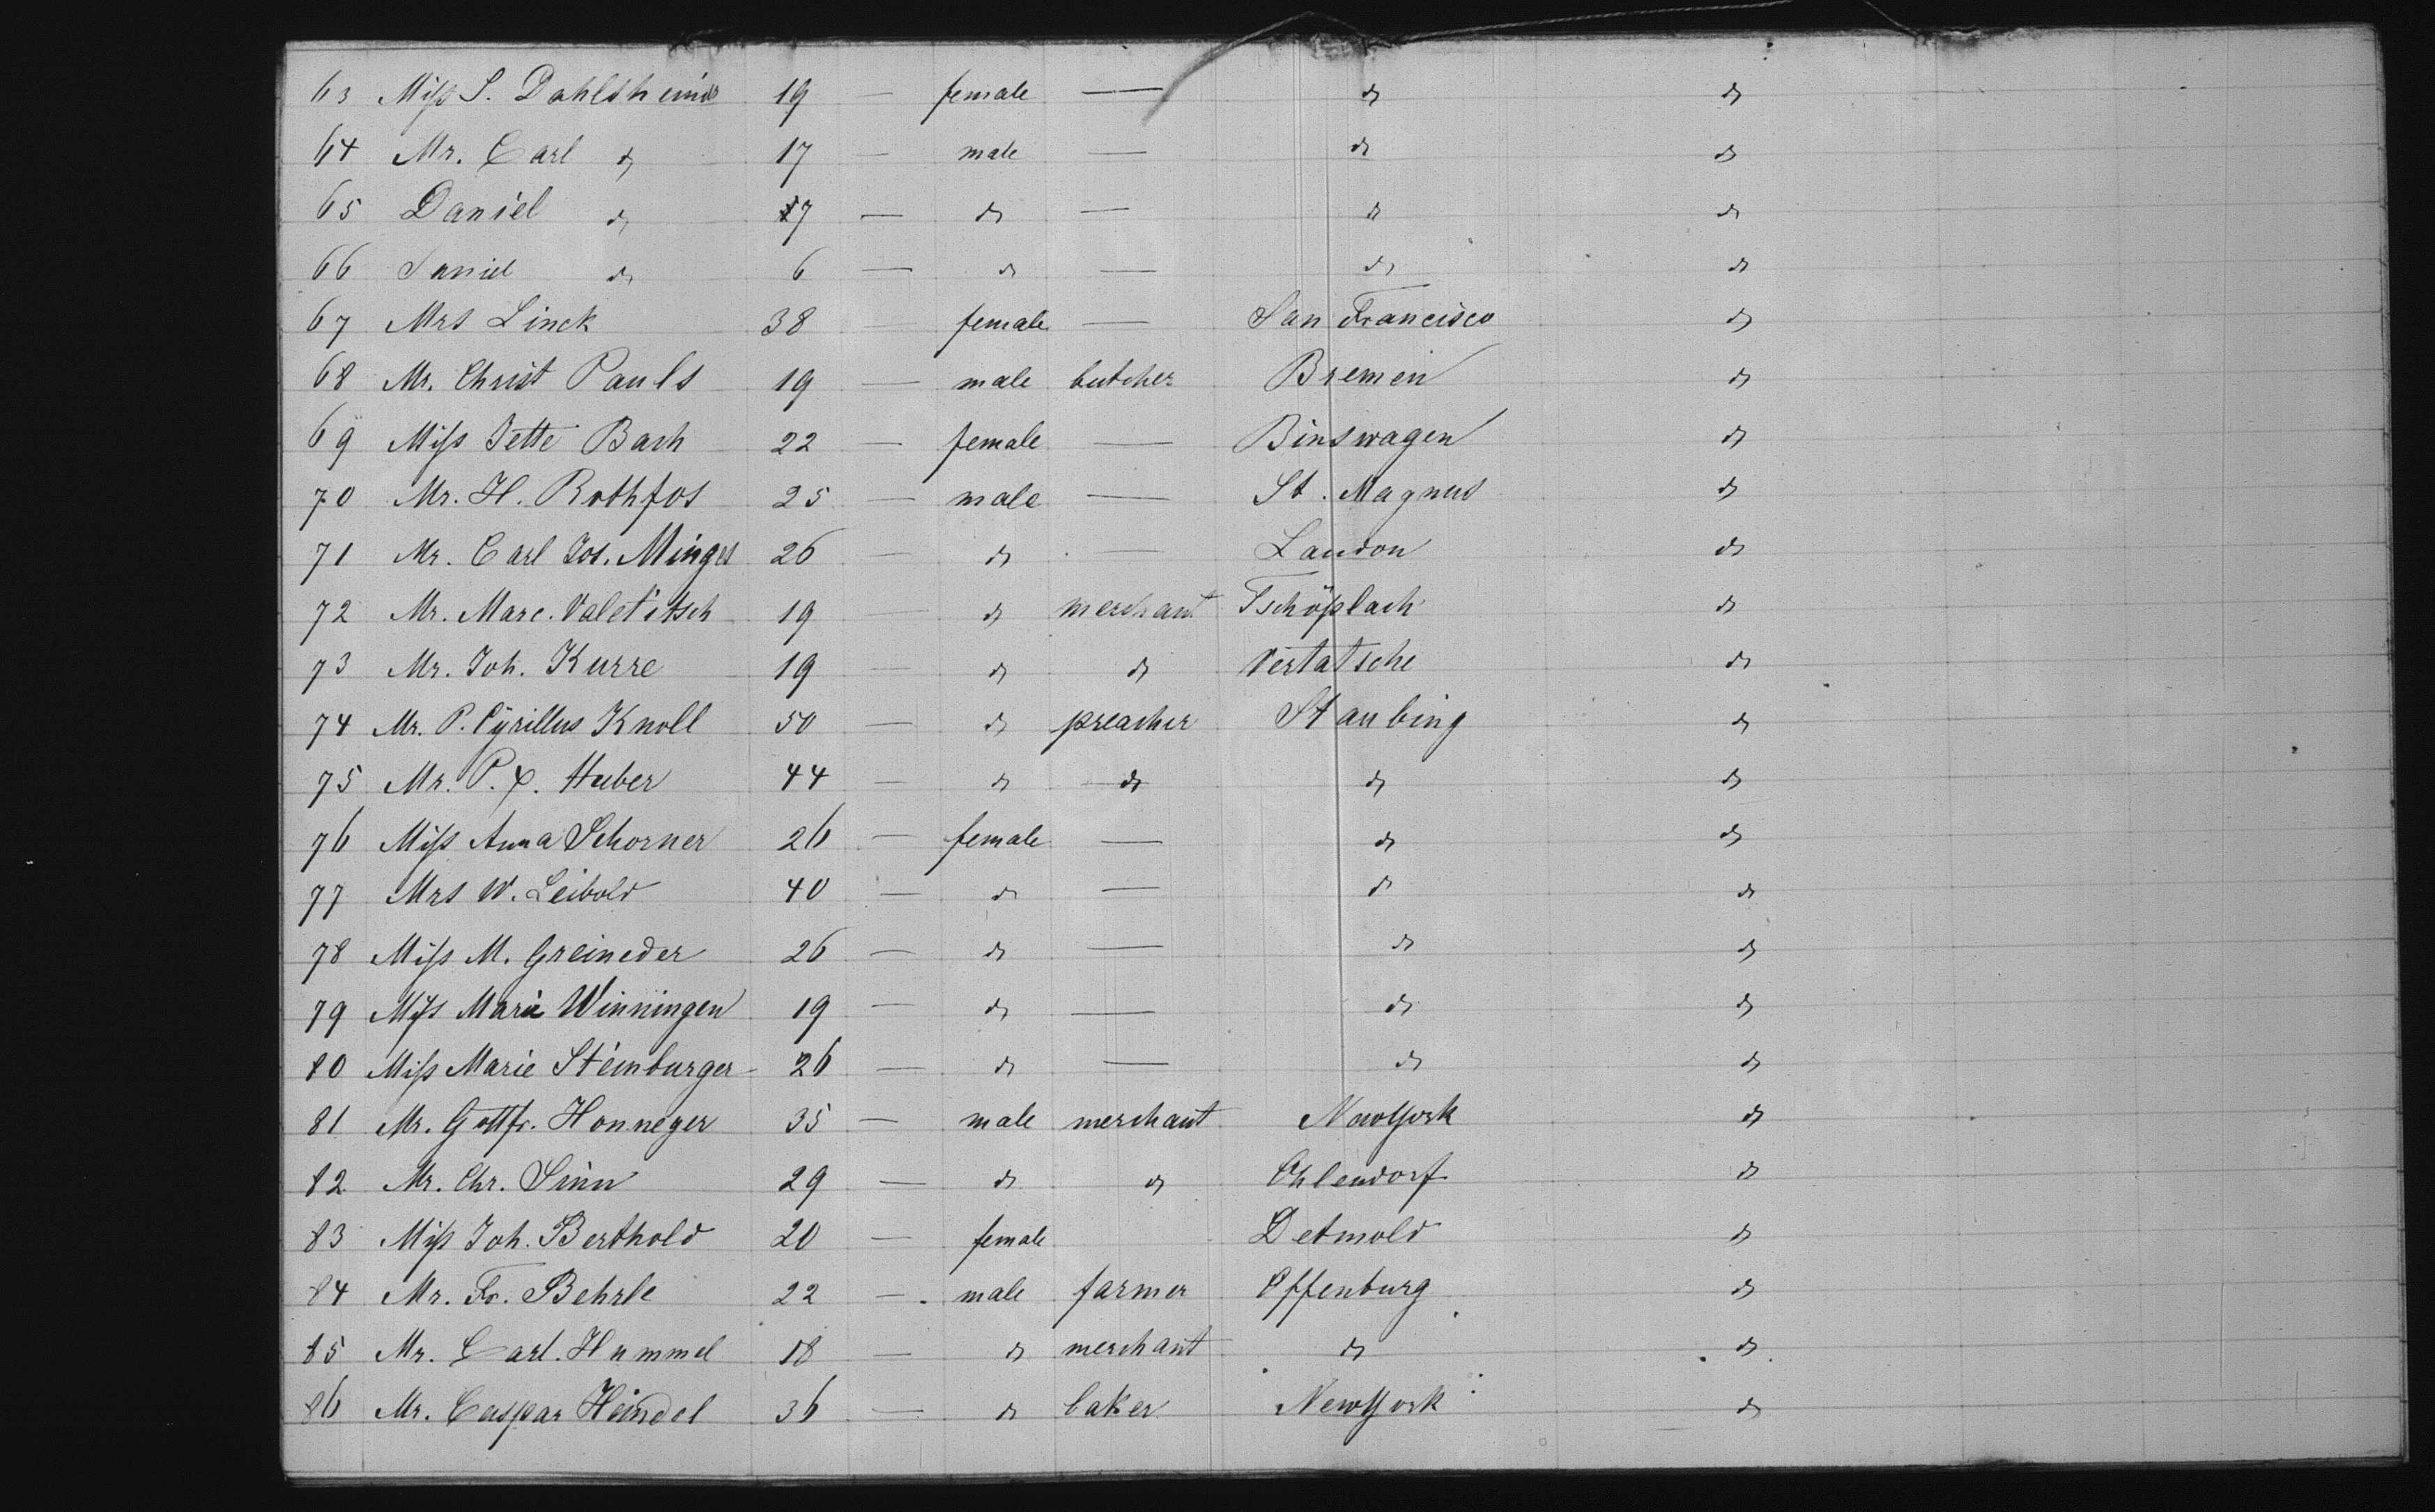 63 Miss S. Dahlsheimer 19 — female — do do
64 Mr. Carl do 17 — male — do do
65 Daniel do 7 — do — do do
66 Samiel do 6 — do — do do
67 Mrs Linck 38 female — San Francisco do
68 Mr. Christ Pauls 19 — male butcher Bremen do
69 Miss Jette Bach 22 — female — Binswagen do
70 Mr. H. Rothfos 25 — male — St. Magnus do
71 Mr. Carl Jos. Minges 26 — do — Landon do
72 Mr. Marc. Valetitsch 19 — do merchant Tschöplach do
73 Mr. Joh. Kurre 19 — do do Vertatsche do
74 Mr. P. Cyrillus Knoll 50 — do preacher Staubing do
75 Mr. P. X. Huber 44 — do do do do
76 Miss Anna Schorner 26 — female — do do
77 Mrs W. Leibold 40 — do — do do
78 Miss M. Greineder 26 — do — do do
79 Miss Marie Winningen 19 — do — do do
80 Miss Marie Steinburger 26 — do — do do
81 Mr. Gottfr. Honneger 35 — male merchant New York do
82 Mr. Chr. Sinn 29 — do do Ohlendorf do
83 Miss Joh. Berthold 20 — female Detmold do
84 Mr. Fr. Behrle 22 — male farmer Offenburg do
85 Mr. Carl. Hummel 18 — do merchant do do
86 Mr. Caspar Heindel 36 — do baker New York do